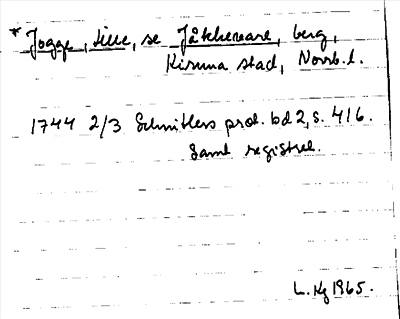 * Jogge, lille, se Jåkkevare, berg,
Kiruna stad, Norrb.l.
1744 2/3 Schnitlers prot. bd 2, s. 416.
Saml registret.
L. Kg 1965.